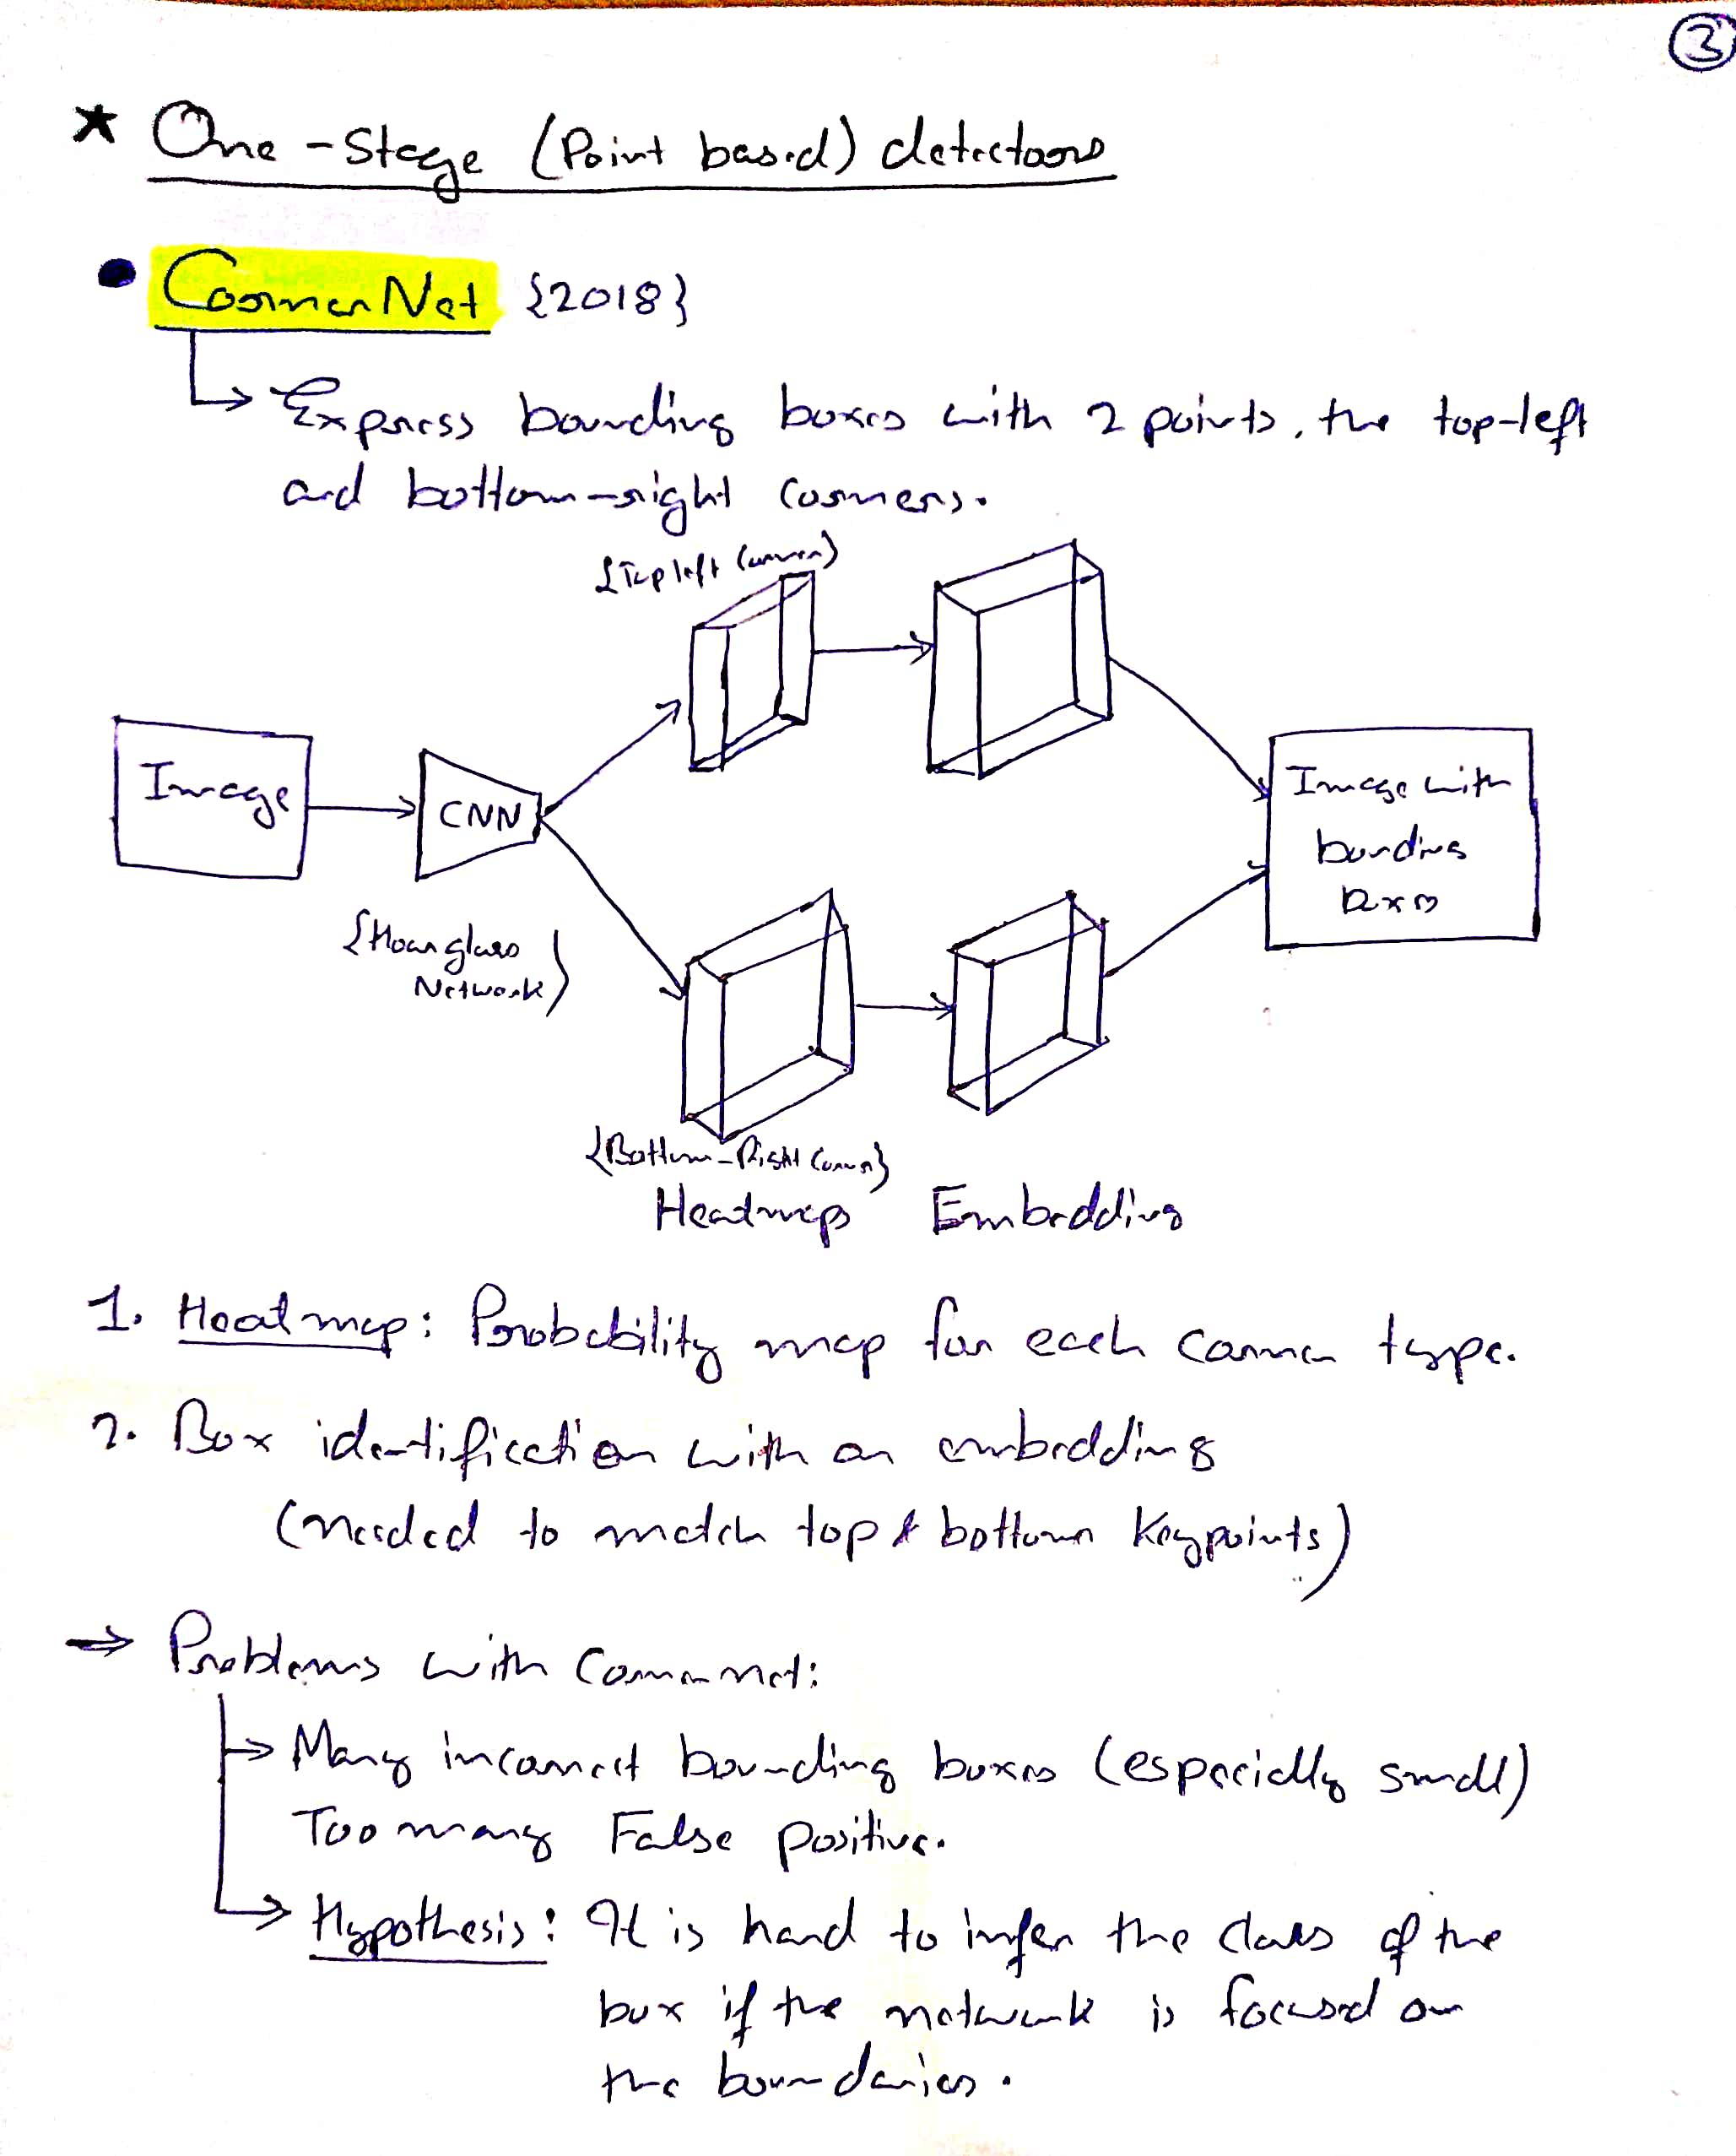 3
* One-Stage (Point based) detectors
• CornerNet {2018}
Express bounding boxes with 2 points, the top-left
and bottom-right corners.
{Top left Corner}
Image
CNN
{Hourglass
Network}
Image with
bounding
boxes
{Bottom-Right Corner}
Heatmaps Embedding
1. Heatmap: Probability map for each corner type.
2. Box identification with an embedding
(needed to match top & bottom Keypoints)
→ Problems with Cornernet:
Many incorrect bounding boxes (especially small)
Too many False positive.
Hypothesis: It is hard to infer the class of the
box if the network is focused on
the boundaries.